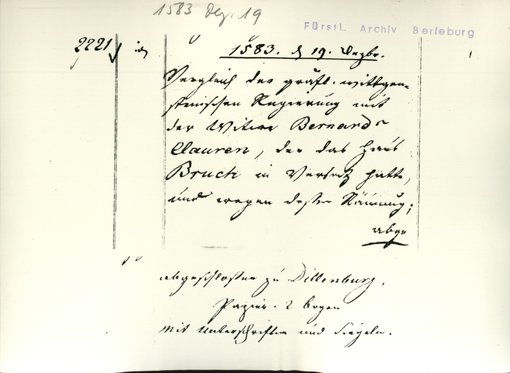 1583 Dez. 19
Fürstl. Archiv Berleburg
2221
1583. d 19. Dezbr.
Vergleich der gräfl. wittgen-
steinischen Regierung mit
der Witwe Bernard
Clauren, der das Haus
Bruch in Versatz hatte,
und wegen dessen Räumung;
abge
abgeschlossen zu Dillenburg.
Papier. 2 bogen
mit Unterschriften und Siegeln.